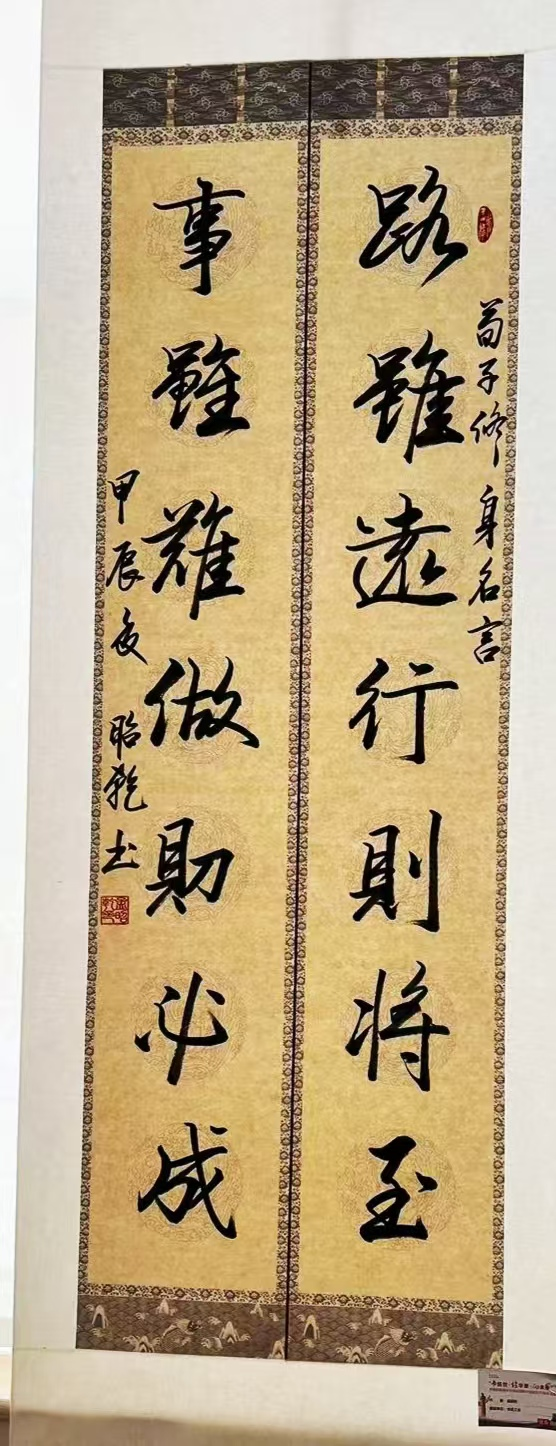 荀子修身名言
路雖遠行則将至
事雖難做則必成
甲辰夏 昭乾书